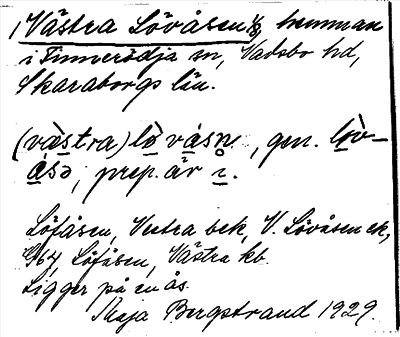 1 Västra Lövåsen 1/8, hemman
i Finnerödja sn, Vadsbo hd,
Skaraborgs län.
(västra) lòvåsn, gen. lòv-
åsə, prep. är i.
Löfåsen, Vestra bek, V. Lövåsen ek,
Löfåsen, Västra kb.
Ligger på en ås.
Maja Bergstrand 1929.